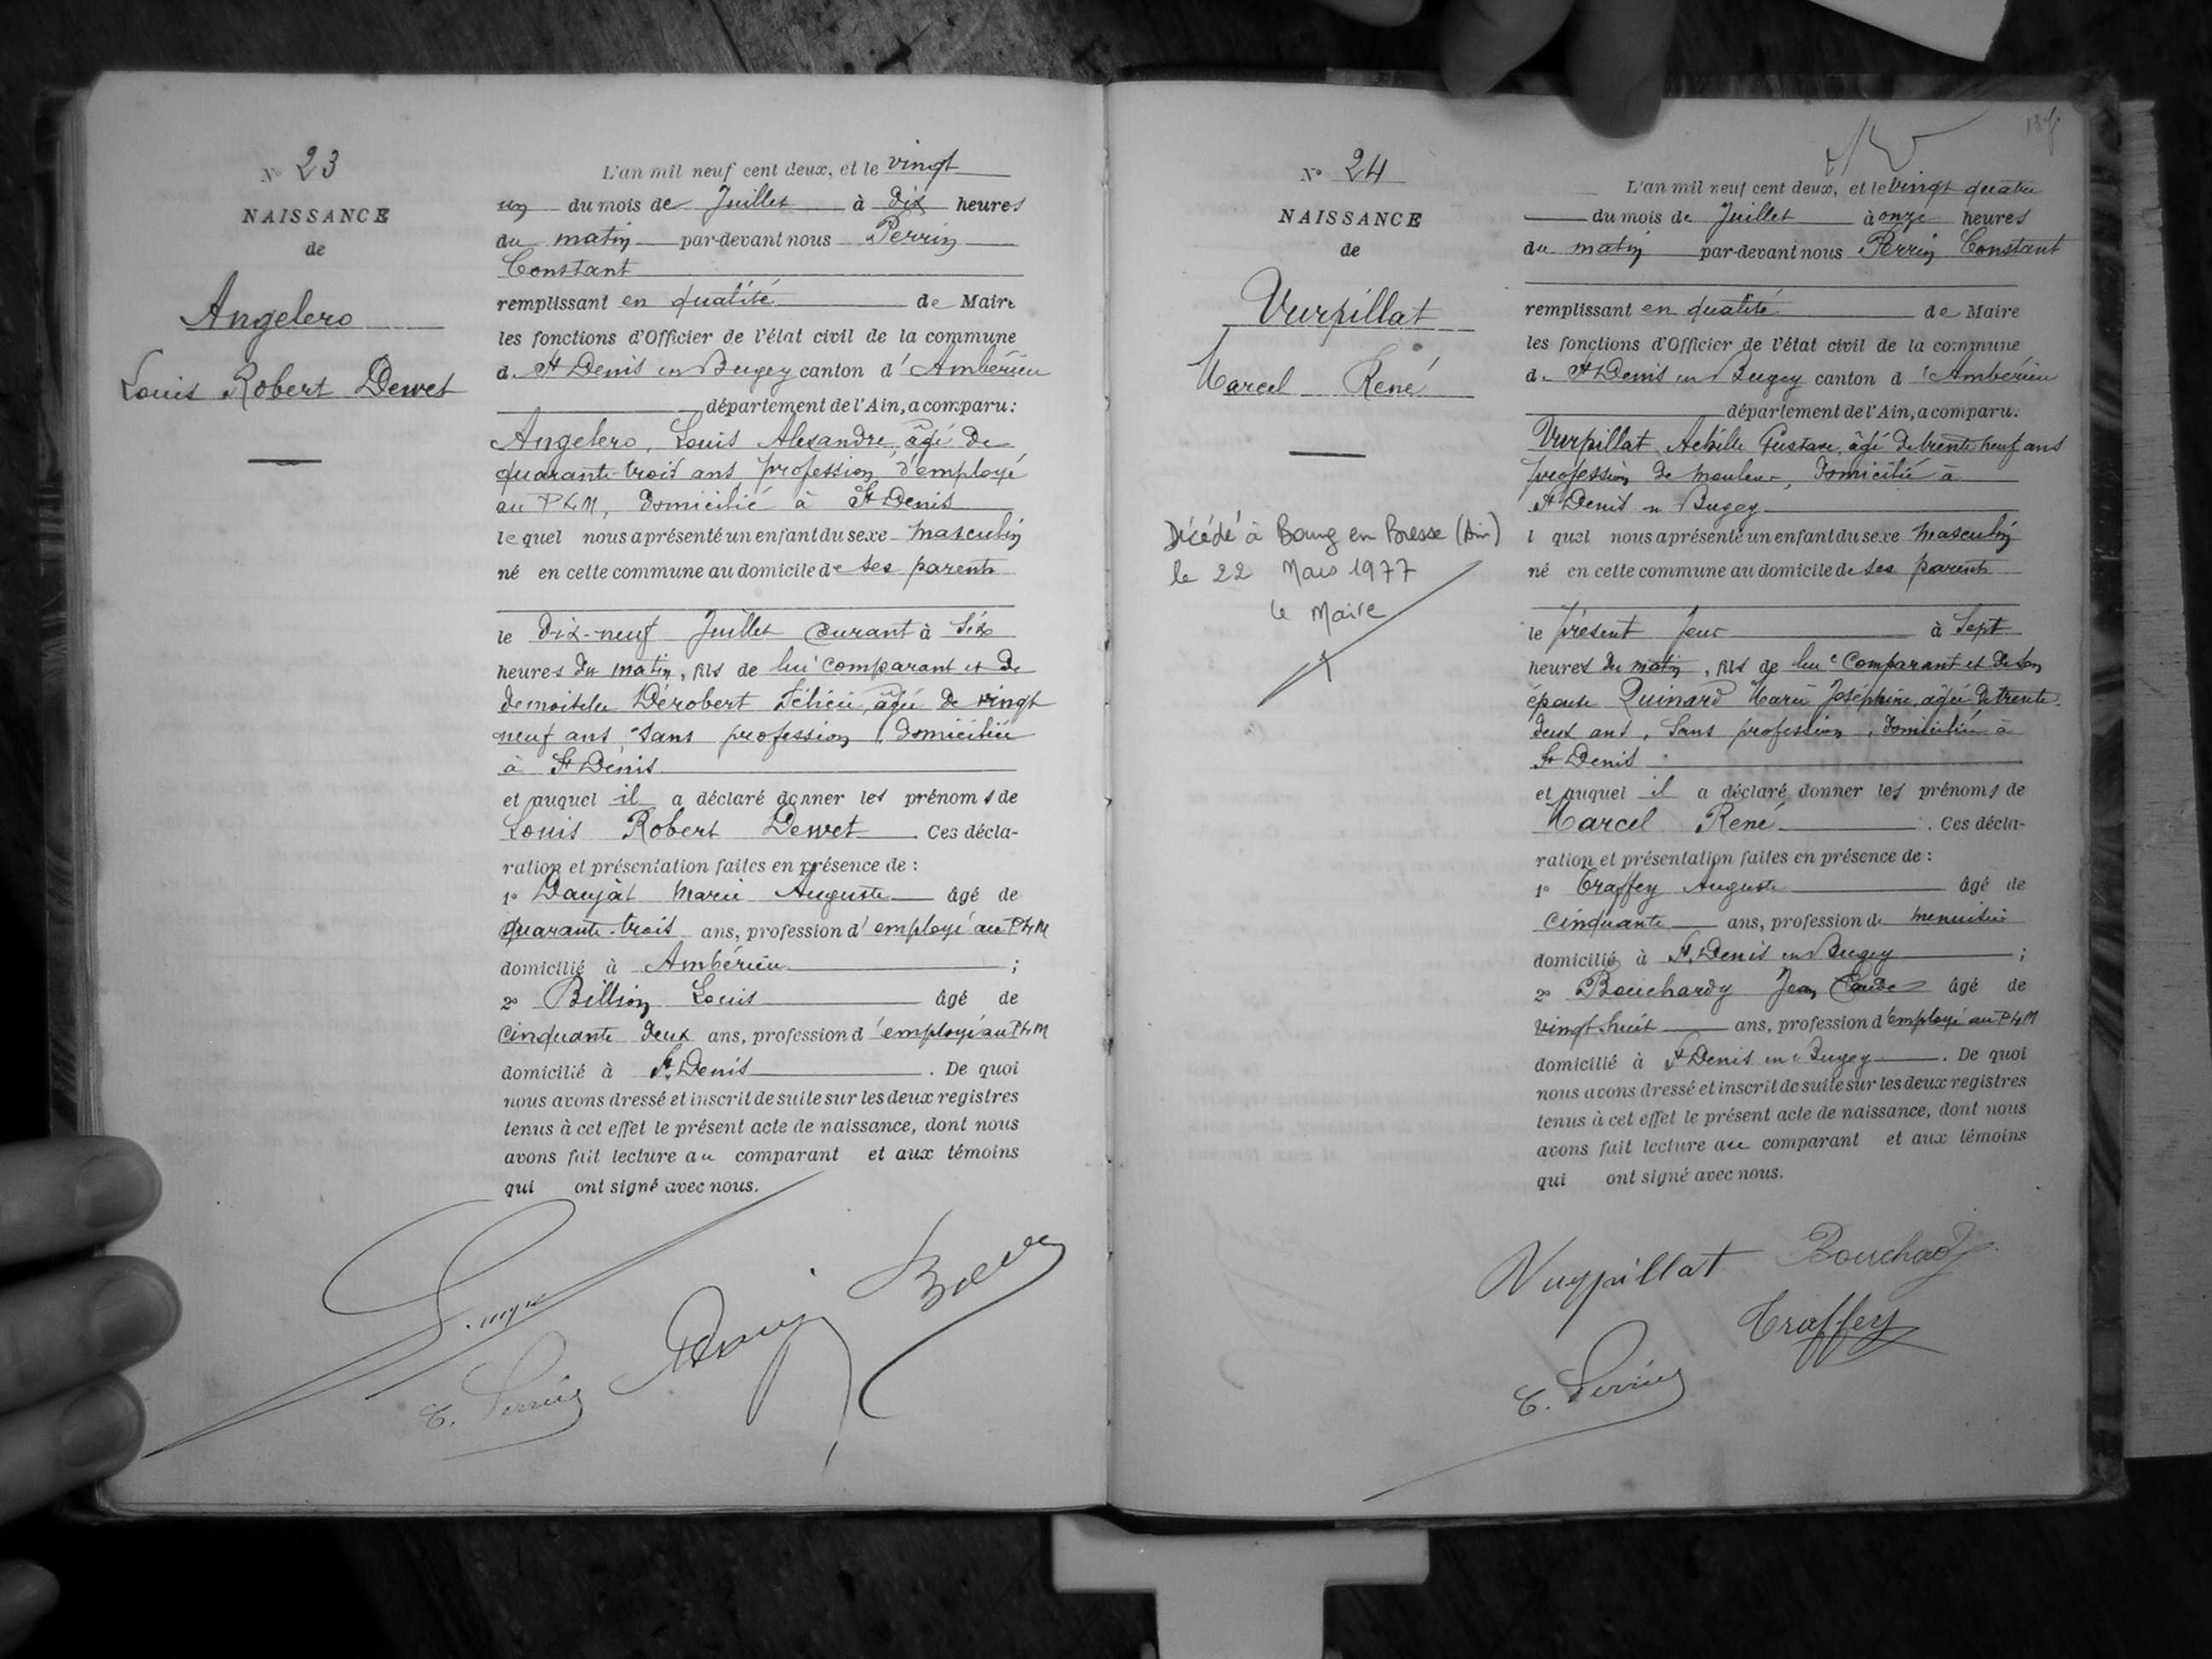 N° 23
NAISSANCE
de
Angelero
Louis Robert Dewet
L'an mil neuf cent deux, et le vingt
un du mois de Juillet à dix heures
du matin par-devant nous Perrin
Constant
remplissant en qualité de Maire
les fonctions d'Officier de l'état civil de la commune
d. St Denis en Bugey canton d'Ambérieu
département de l'Ain, a comparu:
Angelero, Louis Alexandre, âgé de
quarante-trois ans, profession d'employé
au PLM, domicilié à St Denis
lequel nous a présenté un enfant du sexe masculin
né en cette commune au domicile de ses parents
le dix-neuf Juillet courant à six
heures du matin, fils de lui comparant et de
demoiselle Dérobert Félicie, âgée de vingt
neuf ans, sans profession, domiciliée
à St Denis
et auquel il a déclaré donner les prénoms de
Louis Robert Dewet. Ces décla-
ration et présentation faites en présence de :
1° Daujat Marie Auguste âgé de
quarante-trois ans, profession d'employé au PLM
domicilié à Ambérieu ;
2° Billion Louis âgé de
cinquante deux ans, profession d'employé au PLM
domicilié à St Denis. De quoi
nous avons dressé et inscrit de suite sur les deux registres
tenus à cet effet le présent acte de naissance, dont nous
avons fait lecture au comparant et aux témoins
qui ont signé avec nous.
C. Perrin
N° 24
NAISSANCE
de
Vurpillat
Marcel René
Décédé à Bourg en Bresse (Ain)
le 22 Mars 1977
le Maire
L'an mil neuf cent deux, et le vingt quatre
du mois de Juillet à onze heures
du matin par-devant nous Perrin Constant
remplissant en qualité de Maire
les fonctions d'Officier de l'état civil de la commune
d. St Denis en Bugey canton d'Ambérieu
département de l'Ain, a comparu:
Vurpillat Achille Gustave, âgé de trente neuf ans
profession de mouleur, domicilié à
St Denis en Bugey
l quel nous a présenté un enfant du sexe masculin
né en cette commune au domicile de ses parents
le présent jour à sept
heures du matin, fils de lui comparant et de son
épouse Quinard Marie Joséphine, âgée de trente
deux ans, sans profession, domiciliée à
St Denis
et auquel il a déclaré donner les prénoms de
Marcel René. Ces décla-
ration et présentation faites en présence de :
1° Traffey Auguste âgé de
cinquante ans, profession de menuisier
domicilié à St Denis en Bugey ;
2° Bouchardy Jean Claude âgé de
vingt huit ans, profession d'employé au PLM
domicilié à St Denis en Bugey. De quoi
nous avons dressé et inscrit de suite sur les deux registres
tenus à cet effet le présent acte de naissance, dont nous
avons fait lecture au comparant et aux témoins
qui ont signé avec nous.
Vurpillat Bouchardy
Traffey
C. Perrin